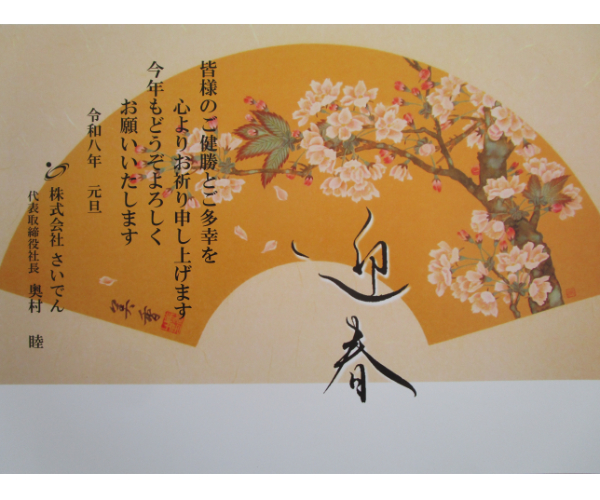 迎春
皆様のご健勝とご多幸を
心よりお祈り申し上げます
今年もどうぞよろしく
お願いいたします
令和八年 元旦
株式会社 さいでん
代表取締役社長 奥村 睦